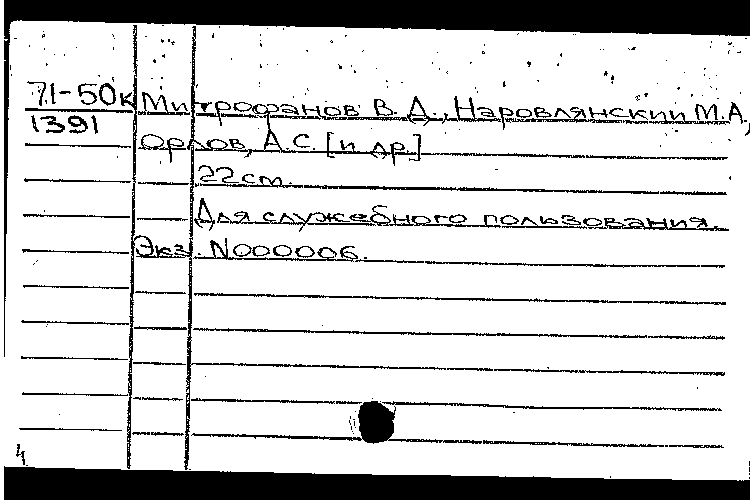 71-50к Митрофанов В. Д., Наровлянский М.А.,
1391
Орлов, А.С. [и др.]
22 см.
Для служебного пользования.
Экз. N000006.
4